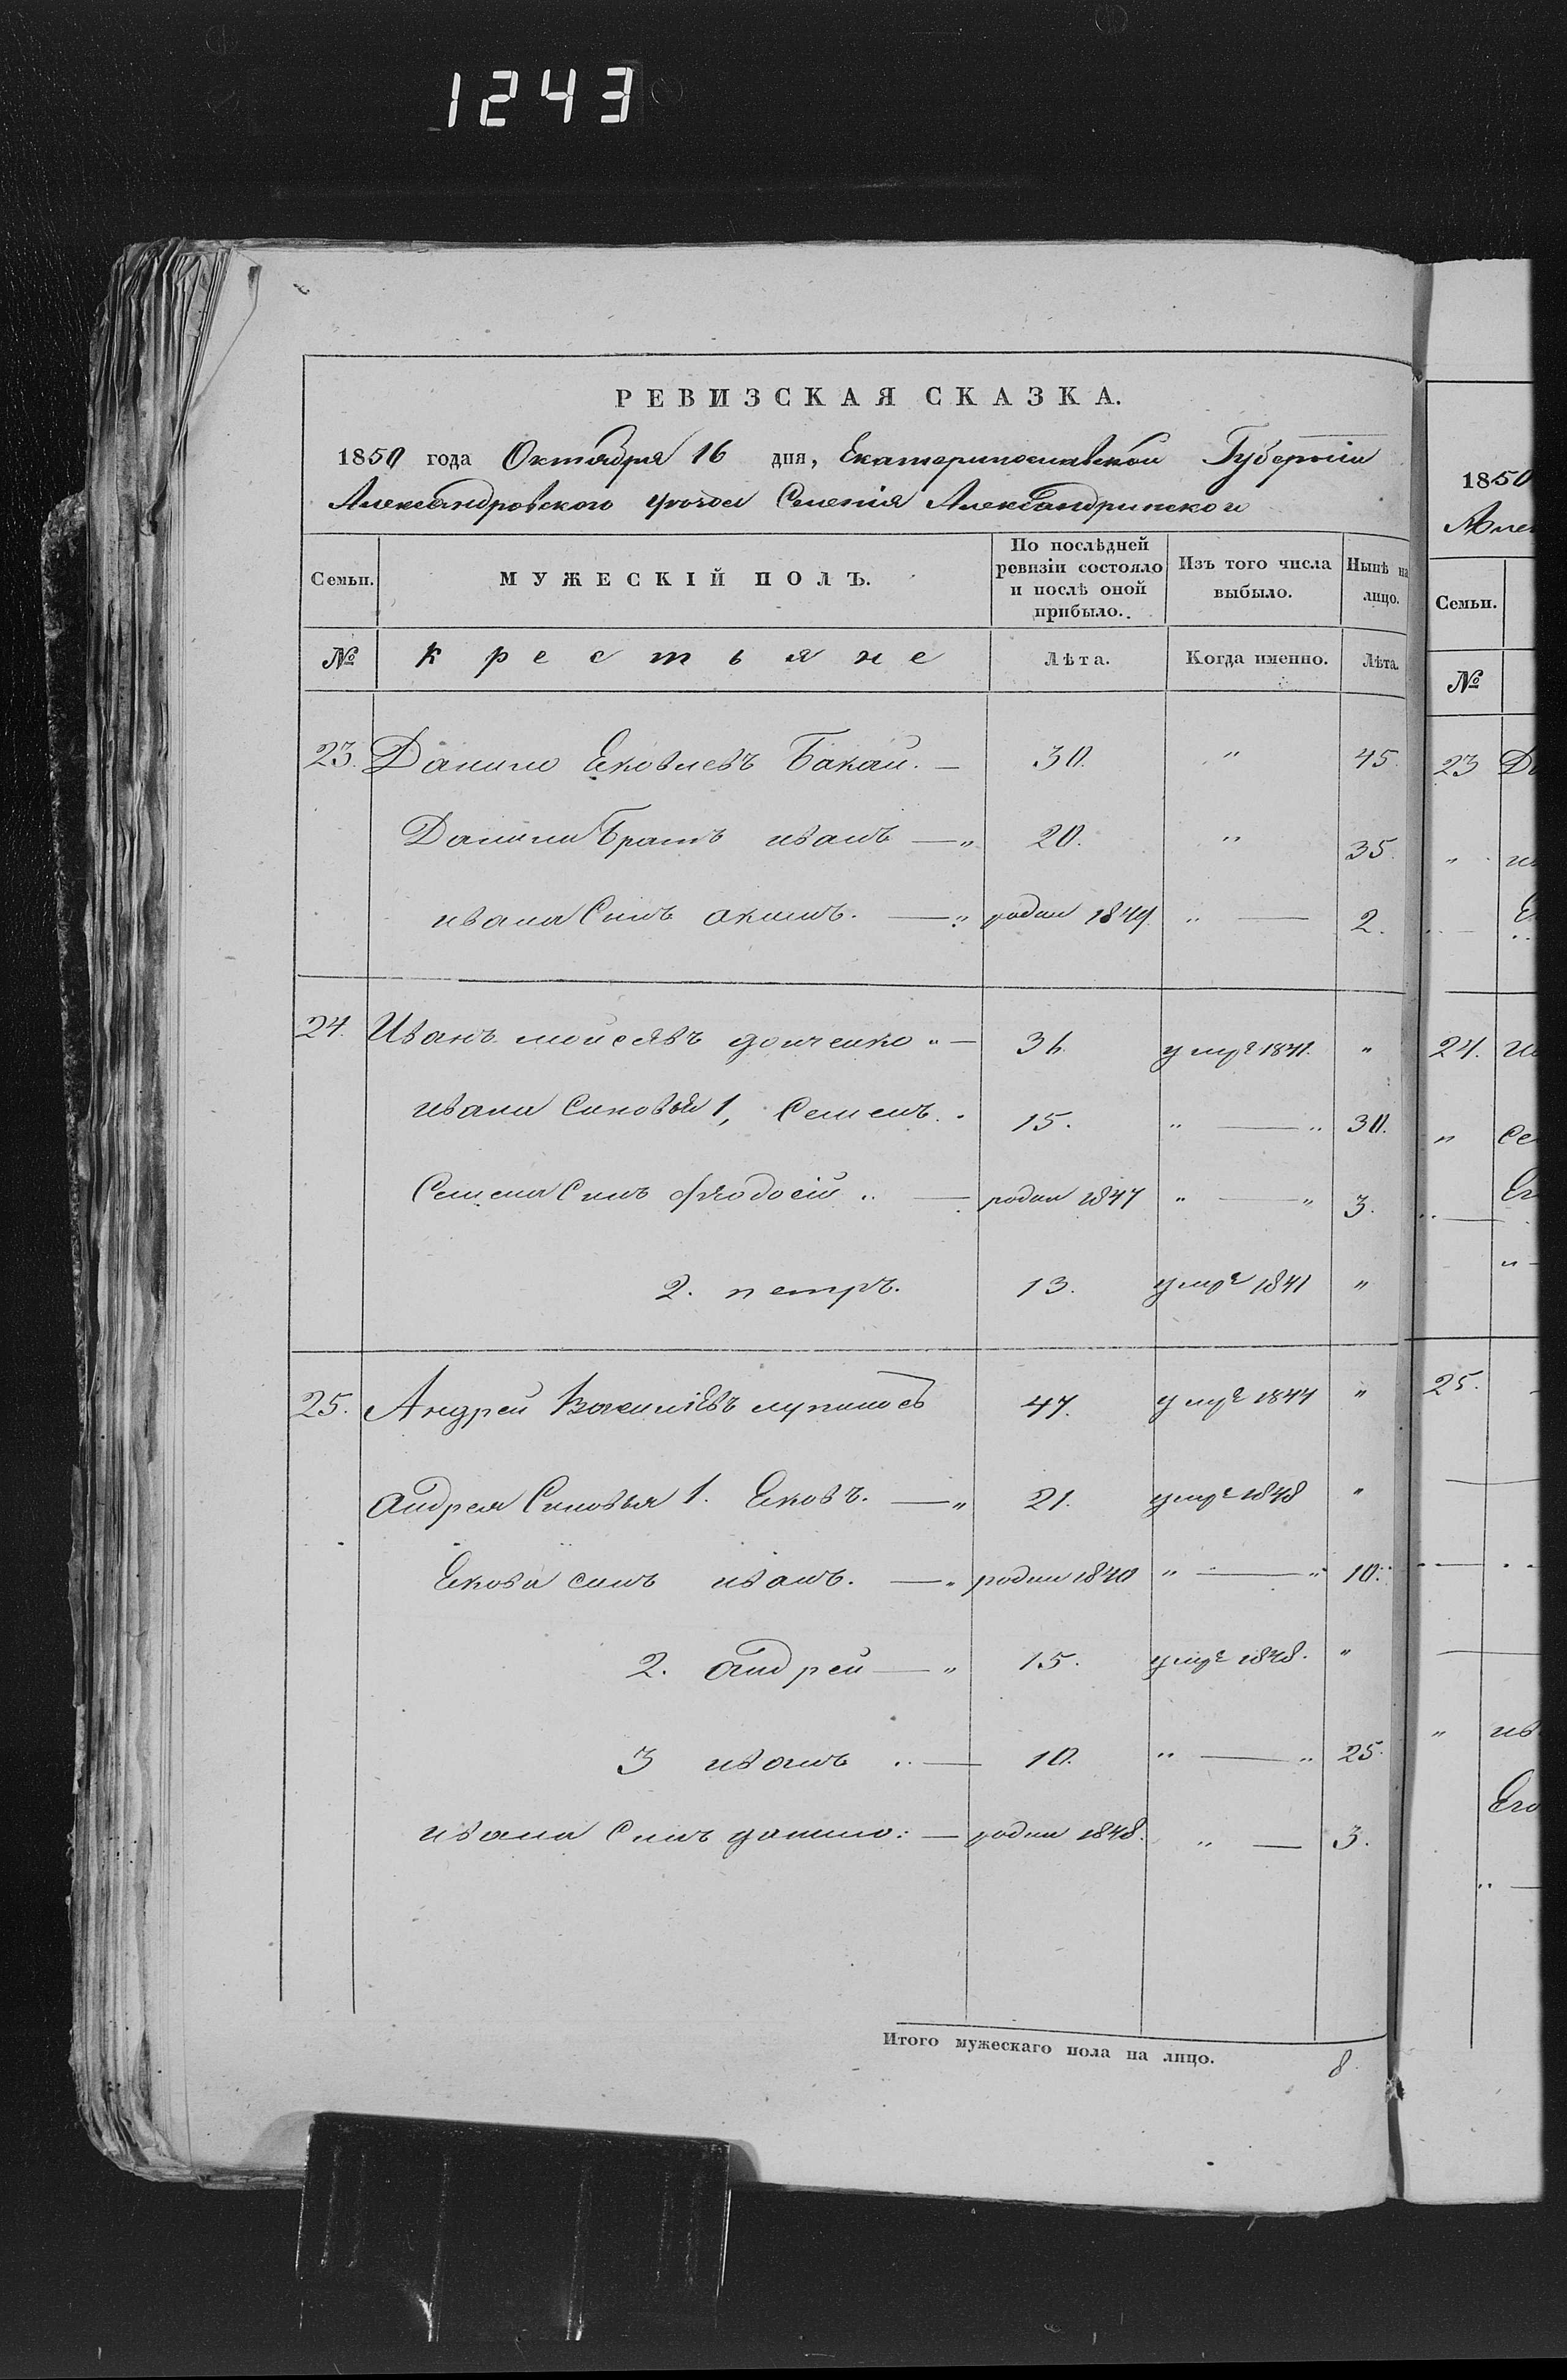 1243
РЕВИЗСКАЯ СКАЗКА.
1850 года Октября 16 дня, Екатеринославской Губерніи
Александровского уезда Селенія Александринского
Семьи. МУЖЕСКІЙ ПОЛЪ. По послѣдней ревизіи состояло и послѣ оной прибыло. Изъ того числа выбыло. Нынѣ на лицо.
№ крестьяне Лѣта. Когда именно. Лѣта.
23. Данило Ековлевъ Бакай. — 30. " 45.
Данили Братъ иванъ — " 20. " 35.
ивана Синъ акимъ. — " родил 1849. " — 2.
24. Иванъ мойсеявъ донченко " — 36. умре 1841. "
ивана Синовья 1, Семенъ. 15. " — " 30.
Семена Синъ фяодосій " — родил 1847 " — " 3.
2. петръ. 13. умре 1841 "
25. Андрей Василіевъ 47. умре 1844 "
андрея Синовья 1. Ековъ. — " 21. умре 1848 "
Екова синъ иванъ. — " родил 1840 " — " 10.
2. андрей — " 15. умре 1848. "
3 иванъ " — 10. " — " 25.
ивана Синъ данило: — родил 1848. " — 3.
Итого мужескаго пола на лицо. 8
1850
Алек
Семьи.
№
23 Да
" ив
24. Ив
" Се
Ег
25.
" ив
Его